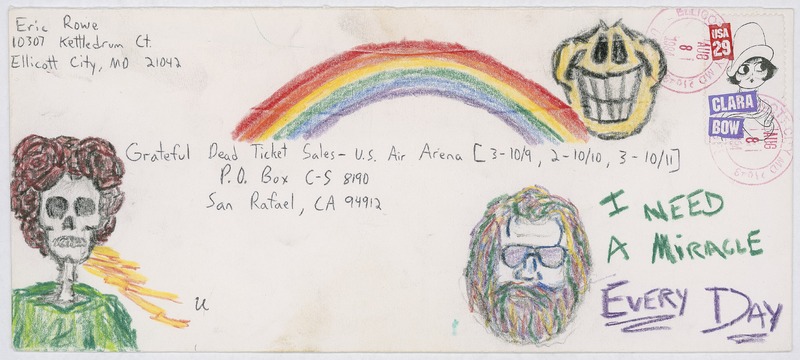 Eric Rowe
10307 Kettledrum Ct.
Ellicott City, MD 21042
USA
29
CLARA
BOW
AUG
8
AUG
8
Grateful Dead Ticket Sales - U.S. Air Arena [3-10/9, 2-10/10, 3-10/11]
P.O. Box C-S 8190
San Rafael, CA 94912
I NEED
A MiRACLE
EVERY DAY
u